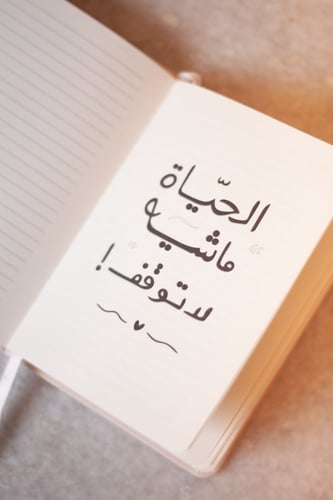 الحيّاة
ماشيه
لا توقف!